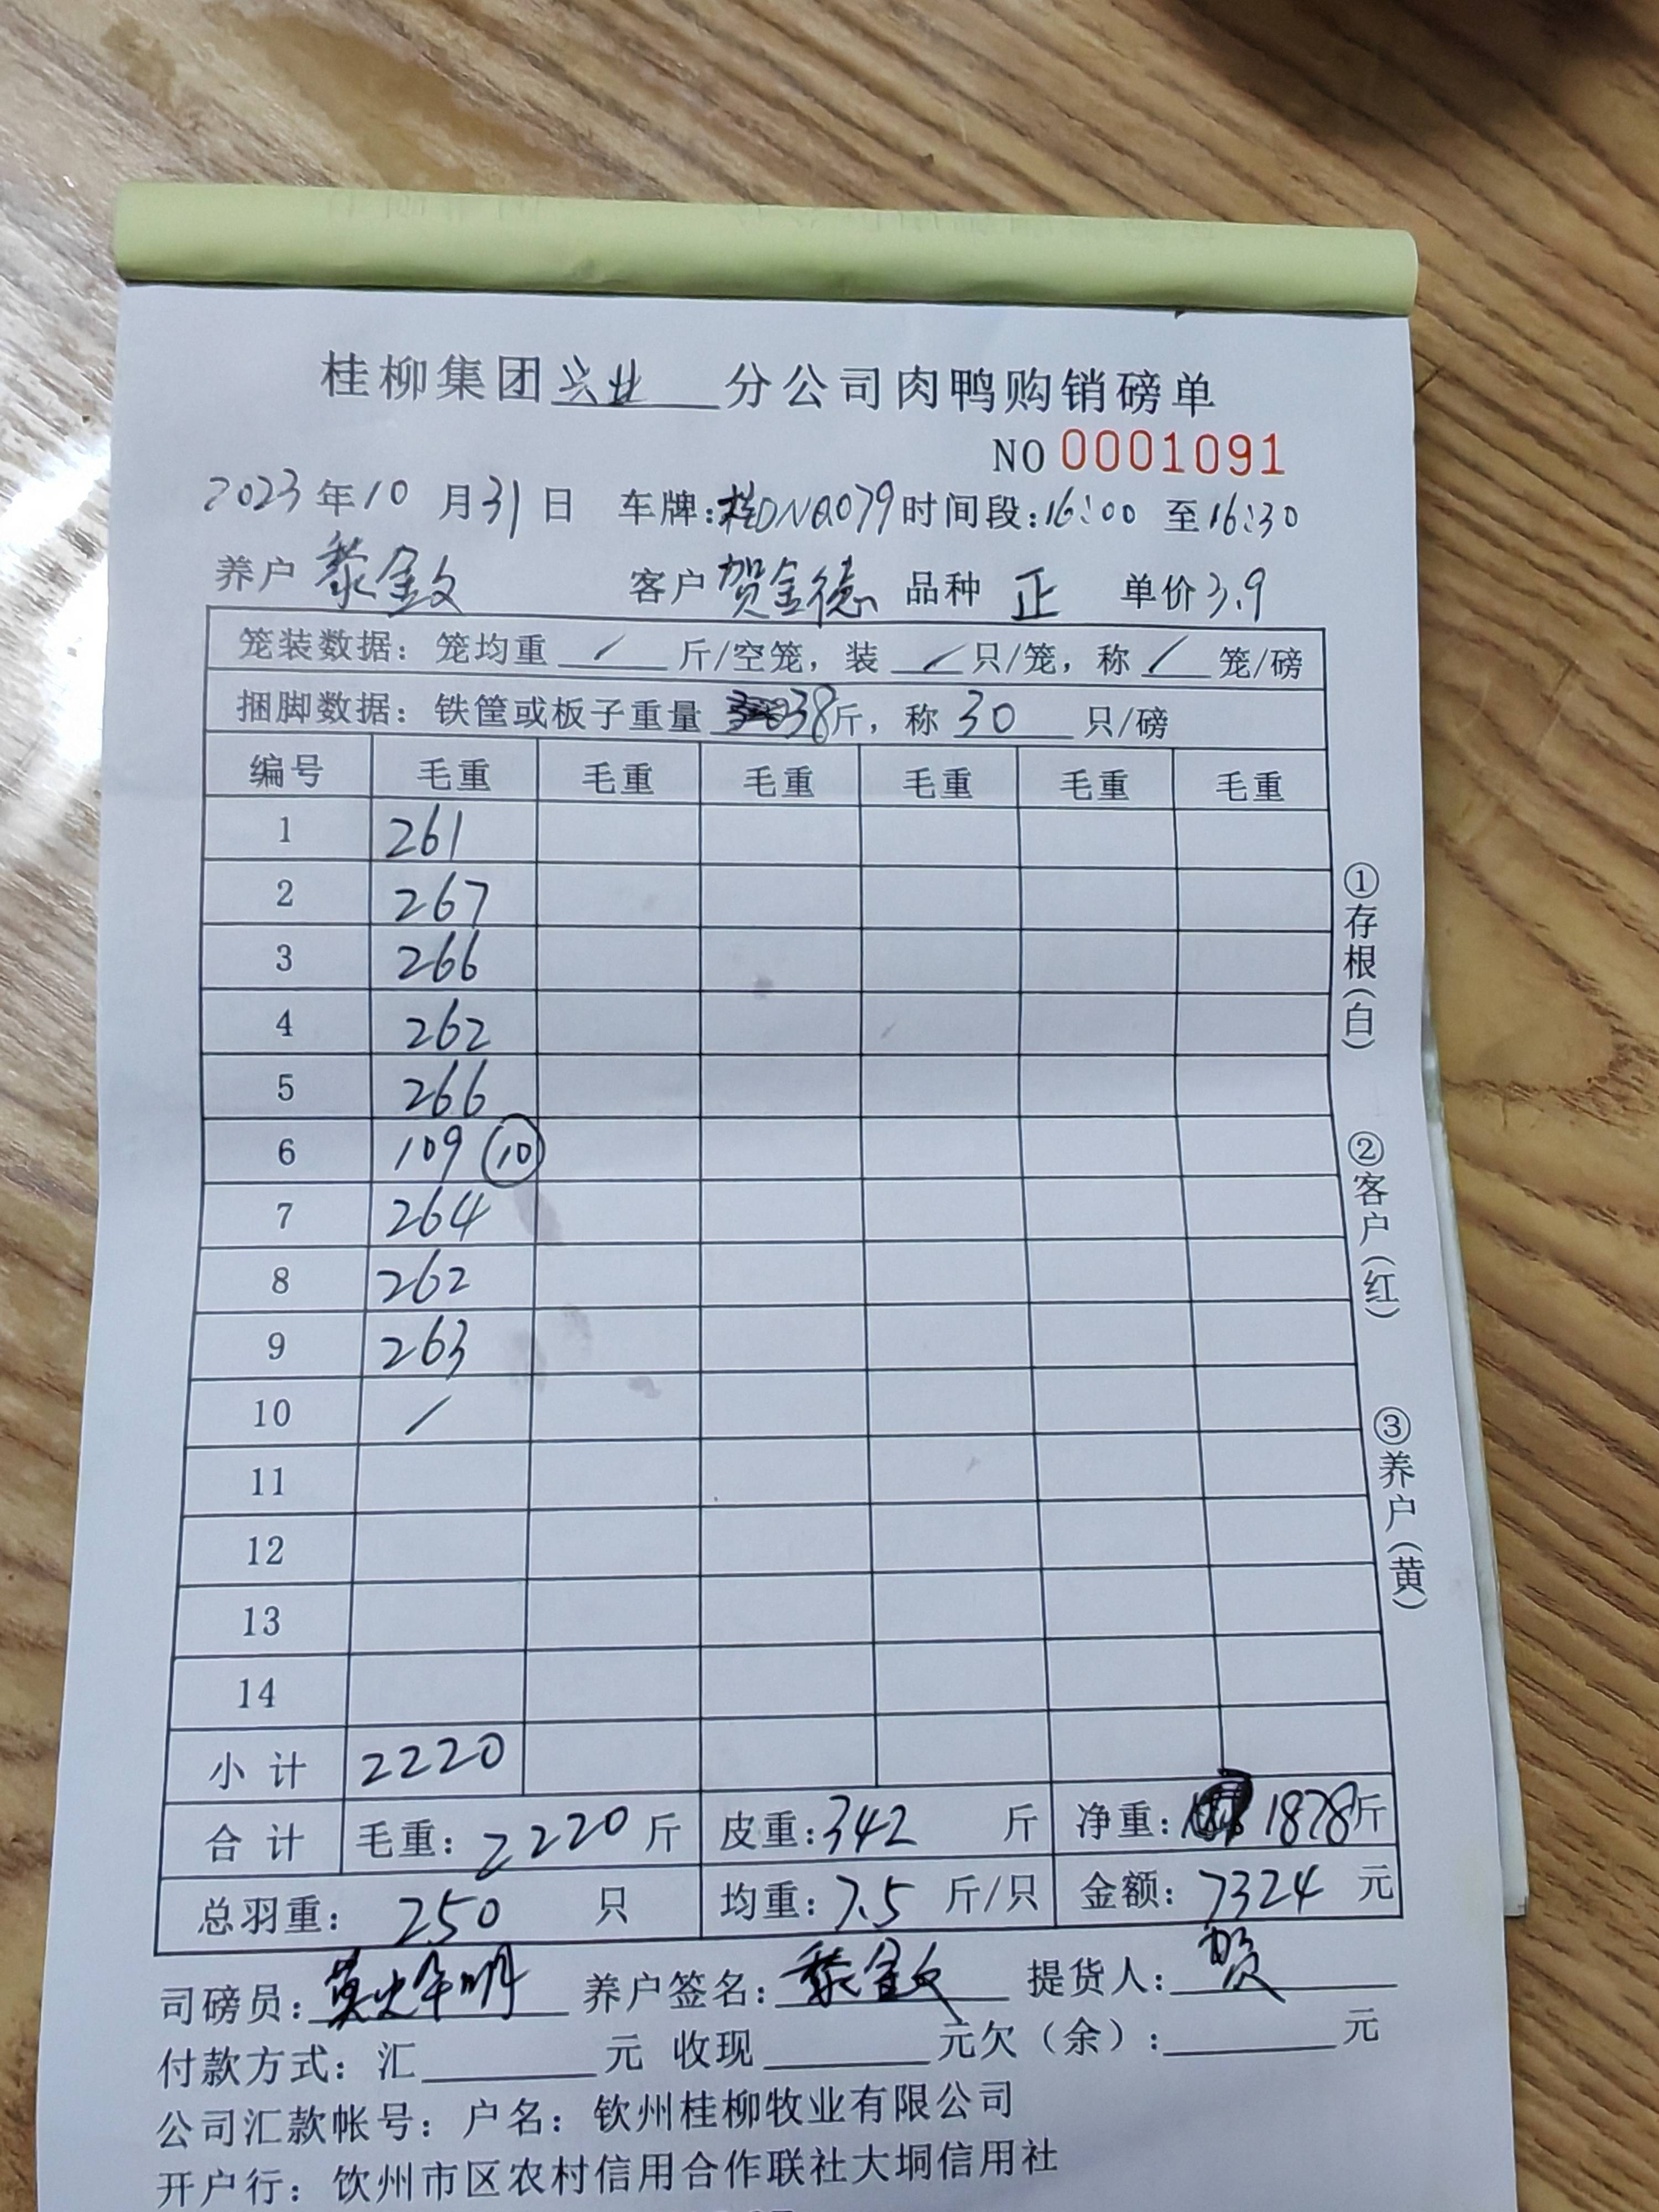 桂柳集团兴业分公司肉鸭购销磅单
NO 0001091
2023年10月31日 车牌:桂DNQ079 时间段:16:00 至16:30
养户 黎金文 客户 贺金德 品种 正 单价3.9
笼装数据: 笼均重 / 斤/空笼, 装 / 只/笼, 称 / 笼/磅
捆脚数据: 铁筐或板子重量 38斤, 称 30 只/磅
编号 毛重 毛重 毛重 毛重 毛重 毛重
1 261
2 267
3 266
4 262
5 266
6 109 ⑩
7 264
8 262
9 263
10 /
11
12
13
14
小计 2220
合计 毛重: 2220 斤 皮重: 342 斤 净重: 1878斤
总羽重: 250 只 均重: 7.5 斤/只 金额: 7324 元
司磅员: 养户签名: 黎金文 提货人: 贺
付款方式: 汇 元 收现 元欠(余): 元
公司汇款帐号: 户名: 钦州桂柳牧业有限公司
开户行: 钦州市区农村信用合作联社大垌信用社
①存根(白)
②客户(红)
③养户(黄)